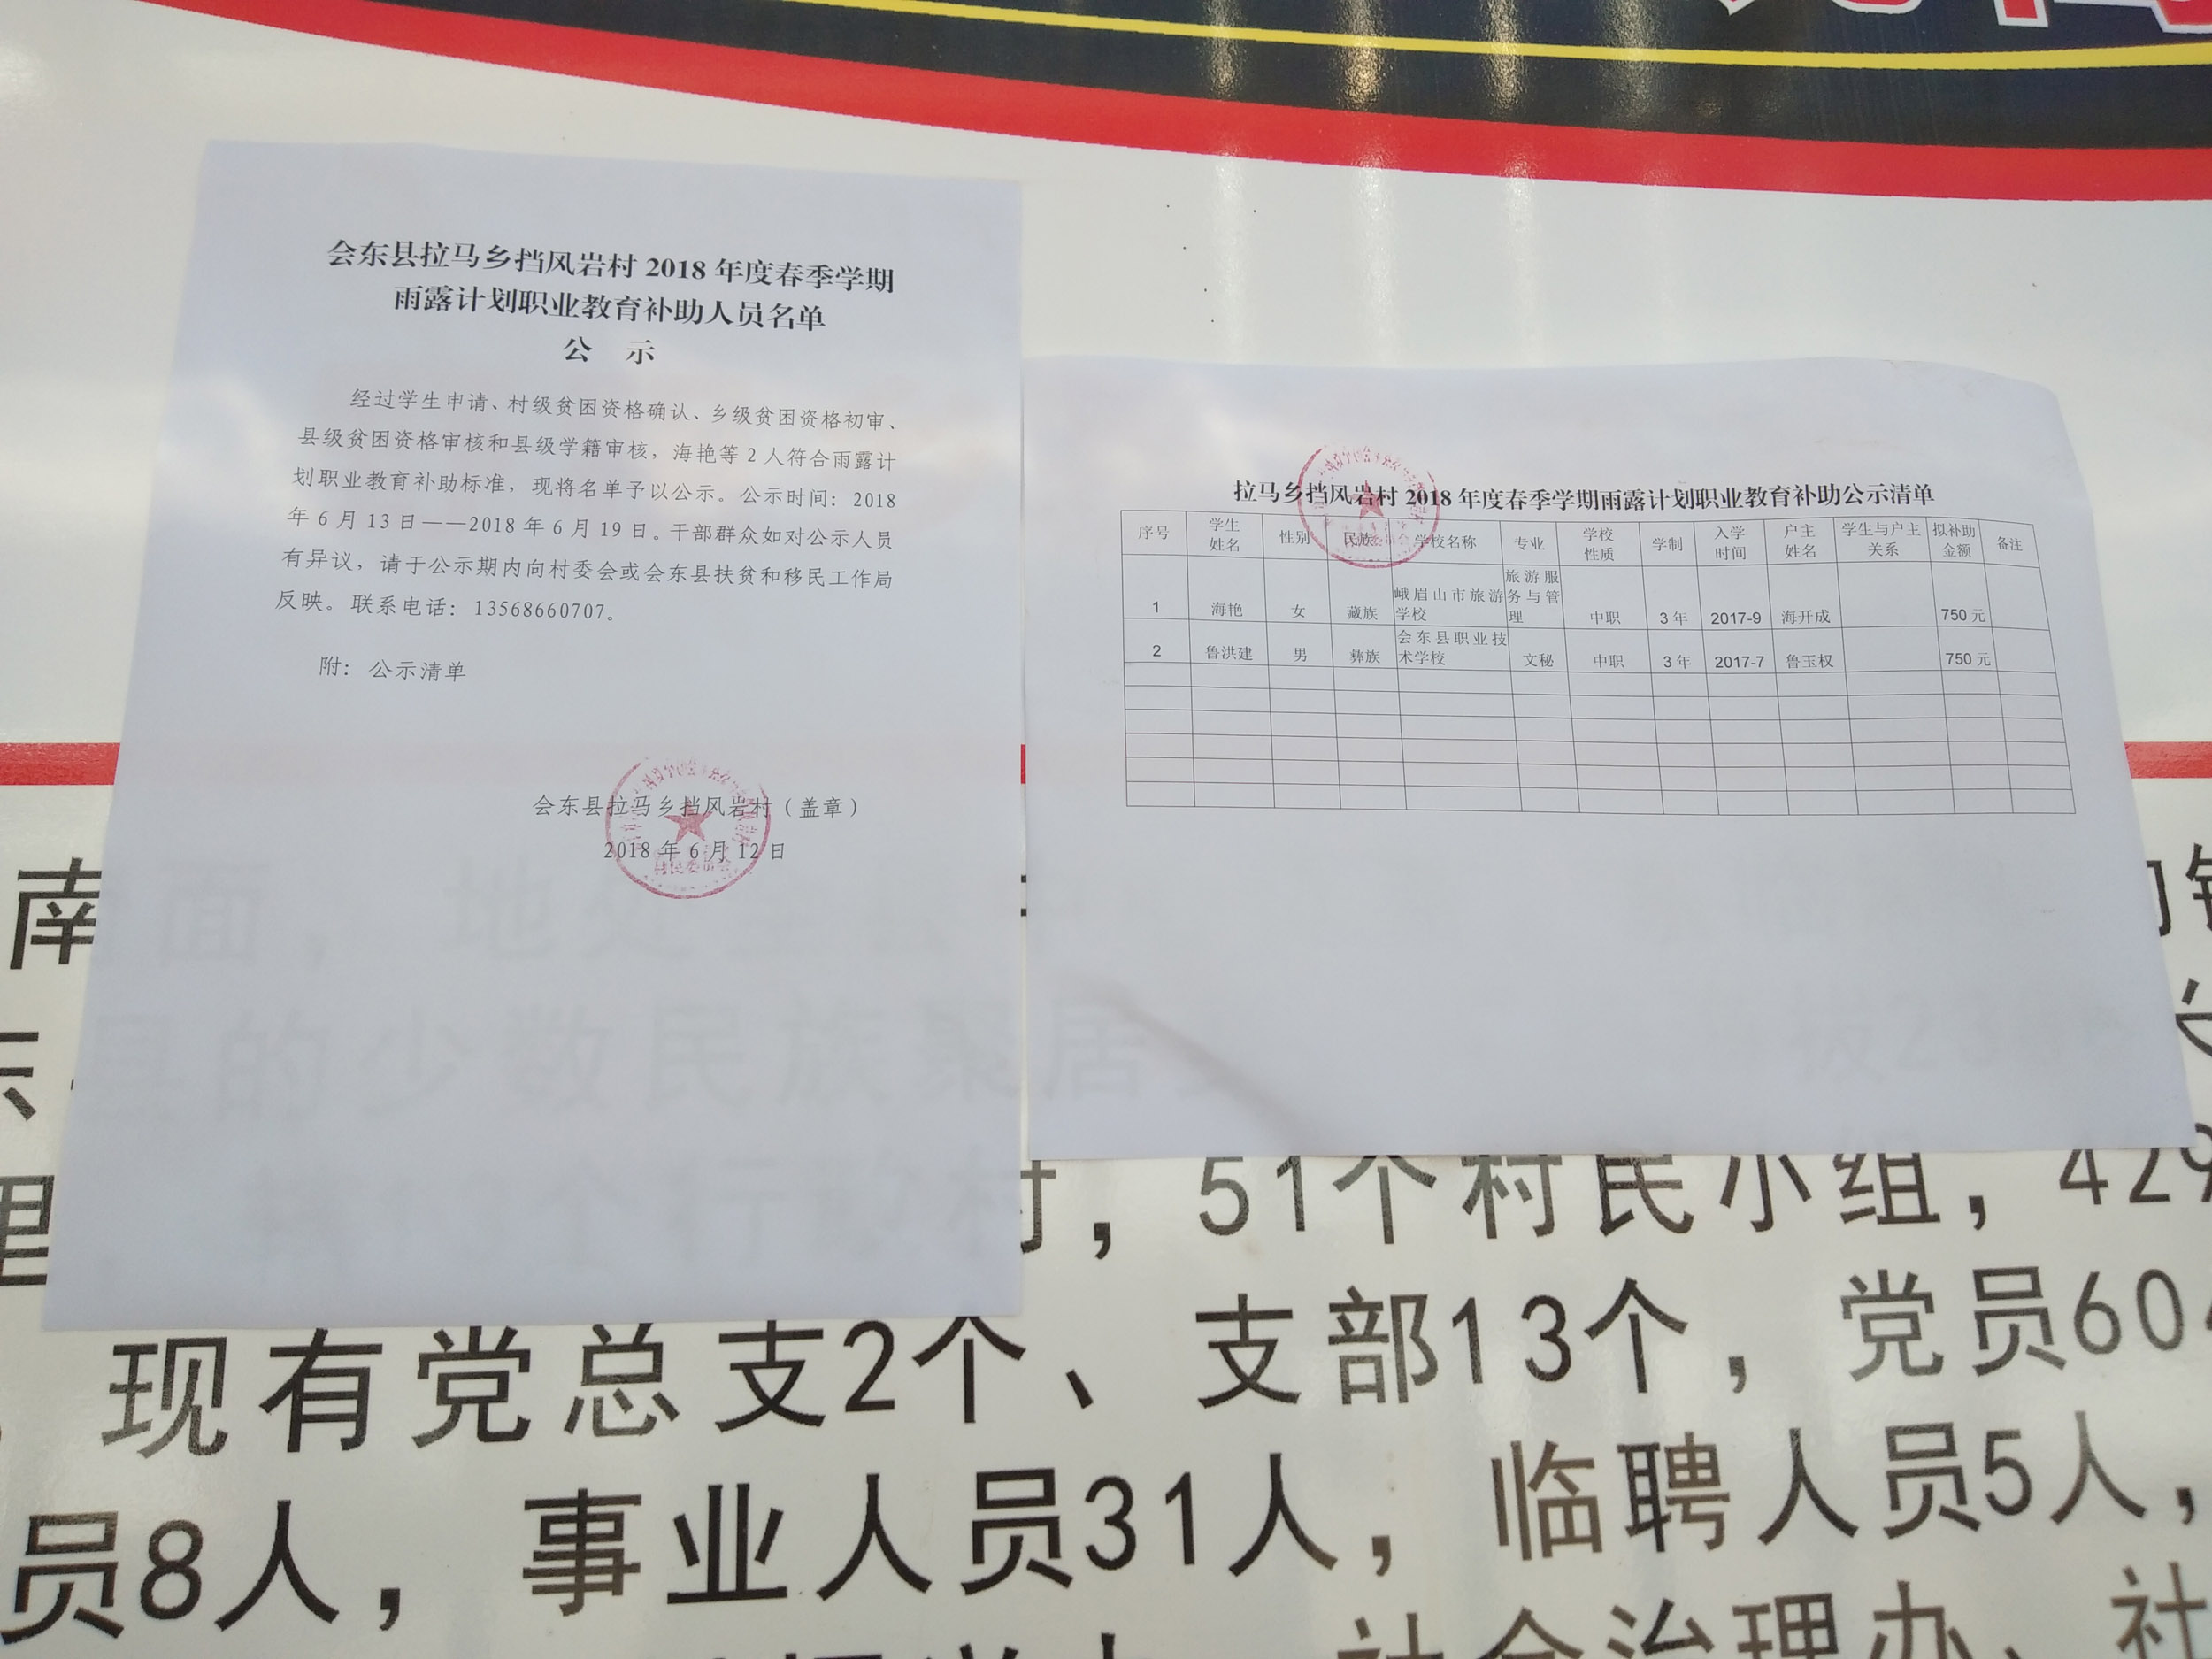 会东县拉马乡挡风岩村 2018 年度春季学期
雨露计划职业教育补助人员名单
公 示
经过学生申请、村级贫困资格确认、乡级贫困资格初审、
县级贫困资格审核和县级学籍审核，海艳等 2 人符合雨露计
划职业教育补助标准，现将名单予以公示。公示时间：2018
年 6 月 13 日——2018 年 6 月 19 日。干部群众如对公示人员
有异议，请于公示期内向村委会或会东县扶贫和移民工作局
反映。联系电话：13568660707。
附：公示清单
会东县拉马乡挡风岩村（盖章）
2018 年 6 月 12 日
拉马乡挡风岩村 2018 年度春季学期雨露计划职业教育补助公示清单
序号 学生姓名 性别 民族 学校名称 专业 学校性质 学制 入学时间 户主姓名 学生与户主关系 拟补助金额 备注
1 海艳 女 藏族 峨眉山市旅游学校 旅游服务与管理 中职 3 年 2017-9 海开成 750 元
2 鲁洪建 男 彝族 会东县职业技术学校 文秘 中职 3 年 2017-7 鲁玉权 750 元
南面，地处
的少数民族聚居
里 个行政村，51个村民小组，429
现有党总支2个、支部13个，党员60
员8人，事业人员31人，临聘人员5人，
社会治理办、社